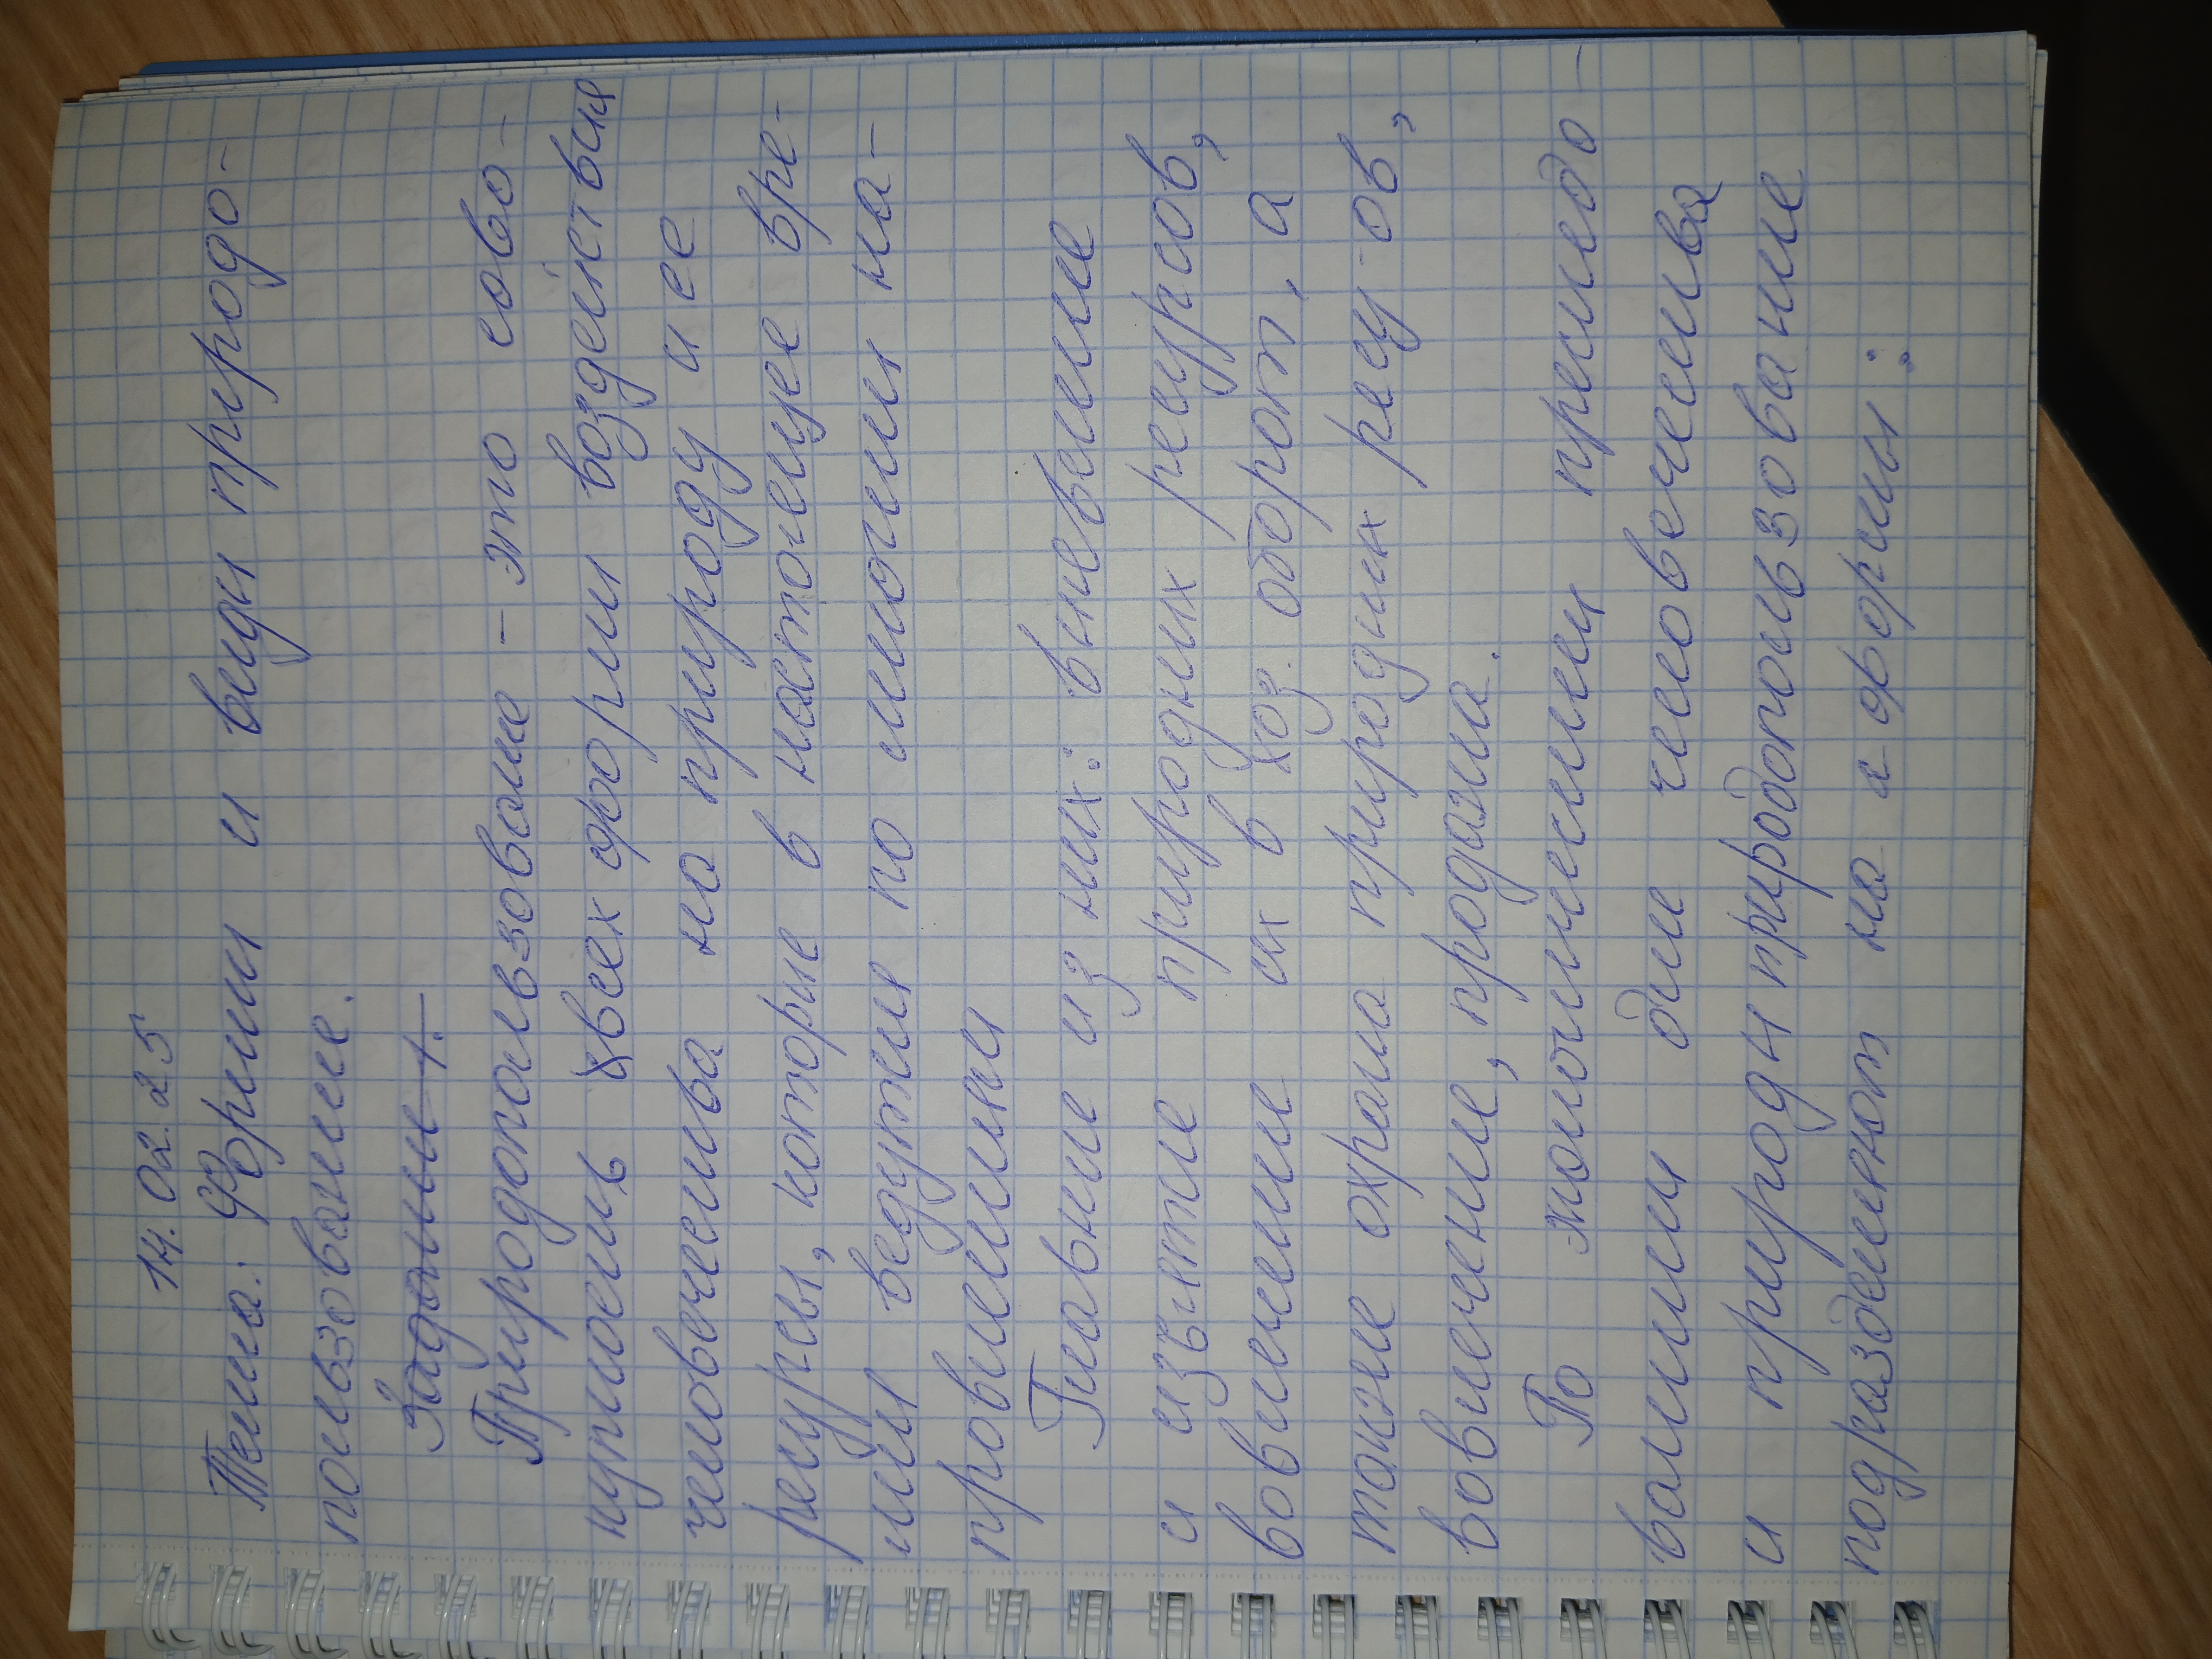 14.02.25
Тема: Формы и виды природо-
пользование.
Задание 1.
Природопользование - это сово-
купность всех форм воздействия
человечества на природу и ее
ресурсы, которые в настоящее вре-
мя ведутся по многим на-
правлениям
Главные из них: выявление
и изъятие природных ресурсов,
вовлечение их в хоз. оборот, а
также охрана природных ресу-ов,
вовлечение, продажа.
По экологическим последо-
ваниям для человечества
и природы природопользование
подразделяют на 2 формы: